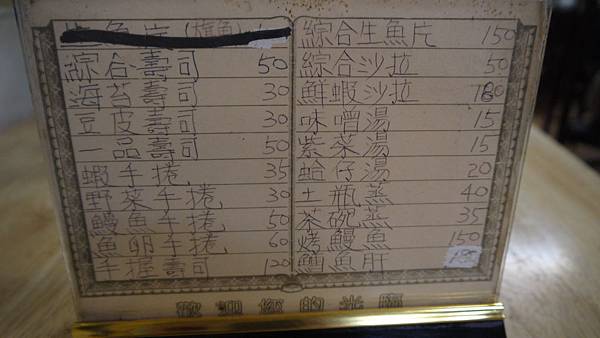 綜合壽司 50
海苔壽司 30
豆皮壽司 30
一品壽司 50
蝦手捲 35
野菜手捲 30
鰻魚手捲 50
魚卵手捲 60
手握壽司 120
綜合生魚片 150
綜合沙拉 50
鮮蝦沙拉
味噌湯 15
紫菜湯 15
蛤仔湯 20
土瓶蒸 40
茶碗蒸 35
烤鰻魚 150
鱈魚肝 180
歡迎您的光臨